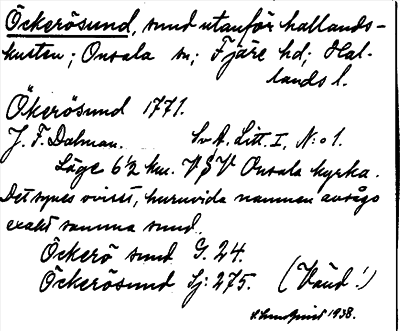 Öckerösund, sund utanför hallands-
kusten; Onsala sn; Fjäre hd; Hal-
lands l.
Ökerösund 1771.
J. F. Dalman. Sv A. Litt. I, N:o 1.
Läge 6½ km. VSV Onsala kyrka.
Det synes ovisst, huruvida namnen avsågo
exakt samma sund.
Öckerö sund G. 24.
Öckerösund Sj: 275. (Vänd!)
1938.